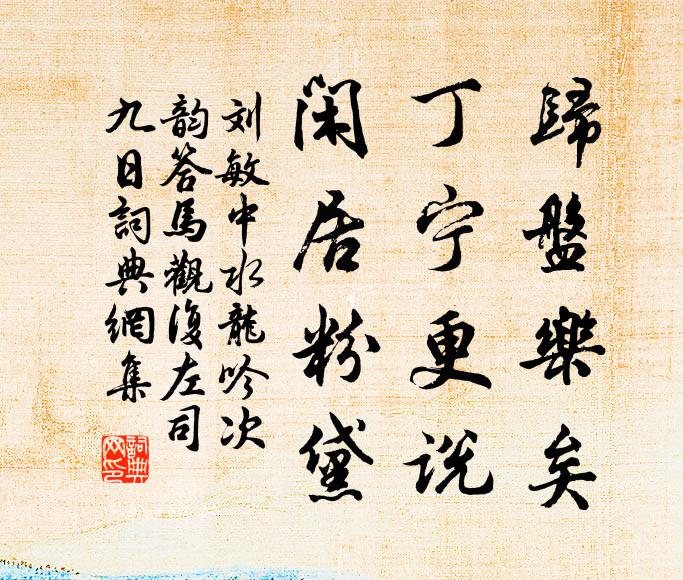 歸盤樂矣
丁宁更说
闲居粉黛
刘敏中水龍吟次
韵答馬觀復左司
九日詞典網集
詞典